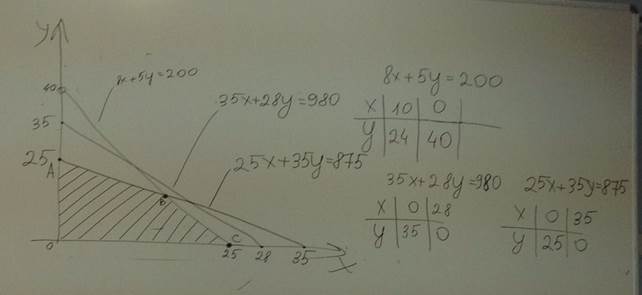 y
40
8x+5y=200
35
35x+28y=980
25
A
25x+35y=875
B
C
0
25
28
35
X
8x+5y=200
X 10 0
y 24 40
35x+28y=980
X 0 28
y 35 0
25x+35y=875
X 0 35
y 25 0